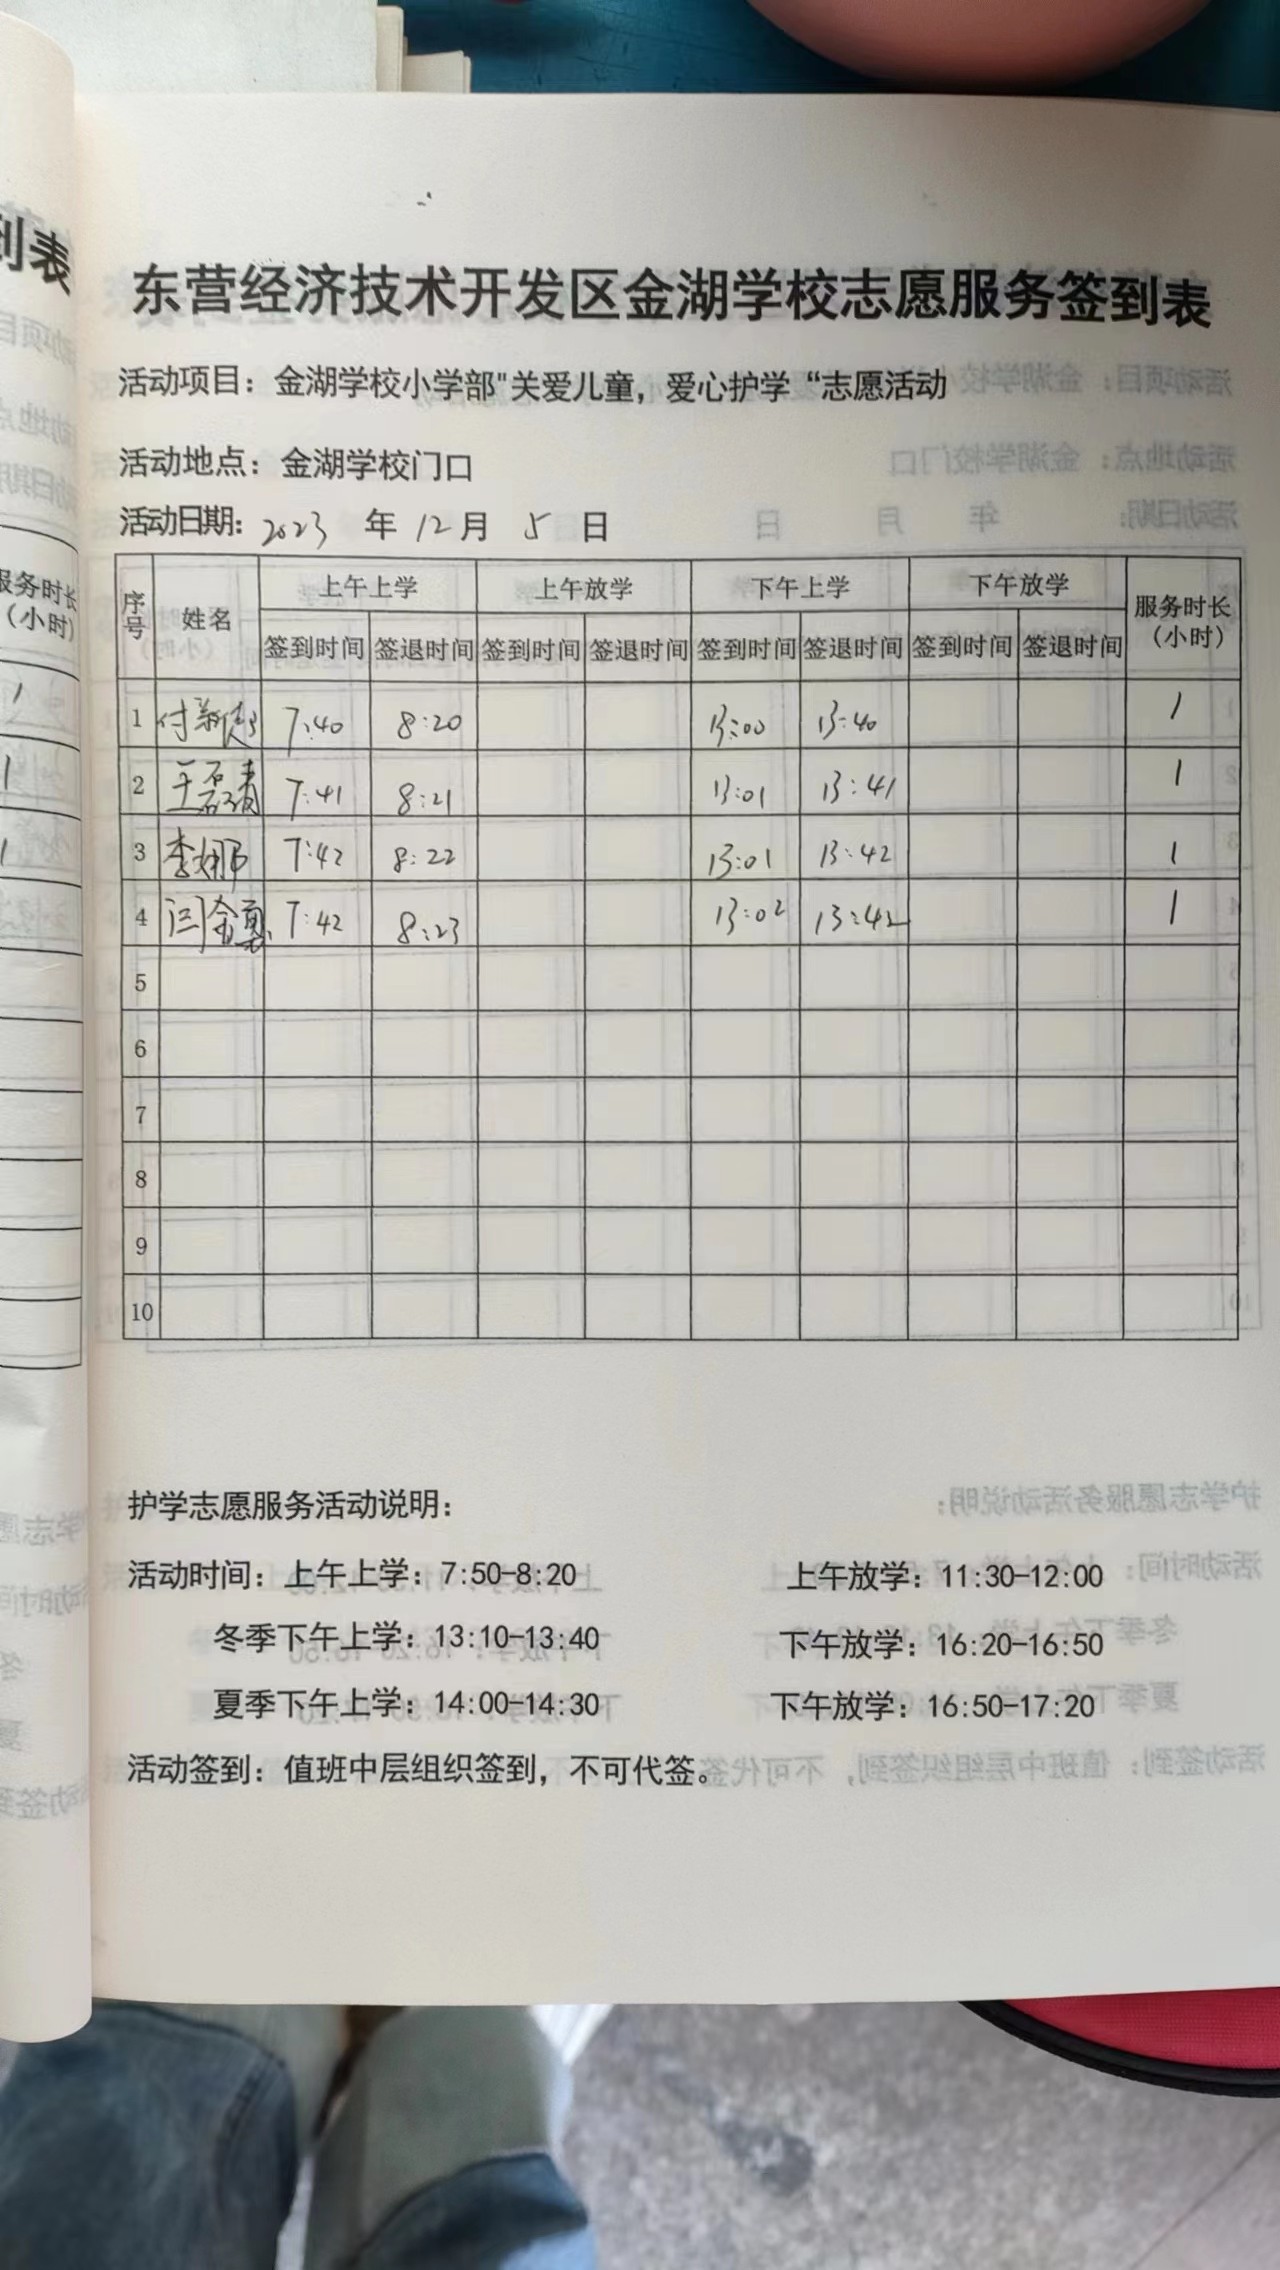 到表
东营经济技术开发区金湖学校志愿服务签到表
活动项目：金湖学校小学部"关爱儿童，爱心护学“志愿活动
活动地点：金湖学校门口
活动日期：2023 年 12 月 5 日
服务时长
（小时）
序号 姓名 上午上学 上午放学 下午上学 下午放学 服务时长（小时）
签到时间 签退时间 签到时间 签退时间 签到时间 签退时间 签到时间 签退时间
1 7:40 8:20 13:00 13:40 1
2 王磊清 7:41 8:21 13:01 13:41 1
3 李娜 7:42 8:22 13:01 13:42 1
4 7:42 8:23 13:02 13:42 1
5
6
7
8
9
10
护学志愿服务活动说明：
活动时间：上午上学：7:50-8:20 上午放学：11:30-12:00
冬季下午上学：13:10-13:40 下午放学：16:20-16:50
夏季下午上学：14:00-14:30 下午放学：16:50-17:20
活动签到：值班中层组织签到，不可代签。